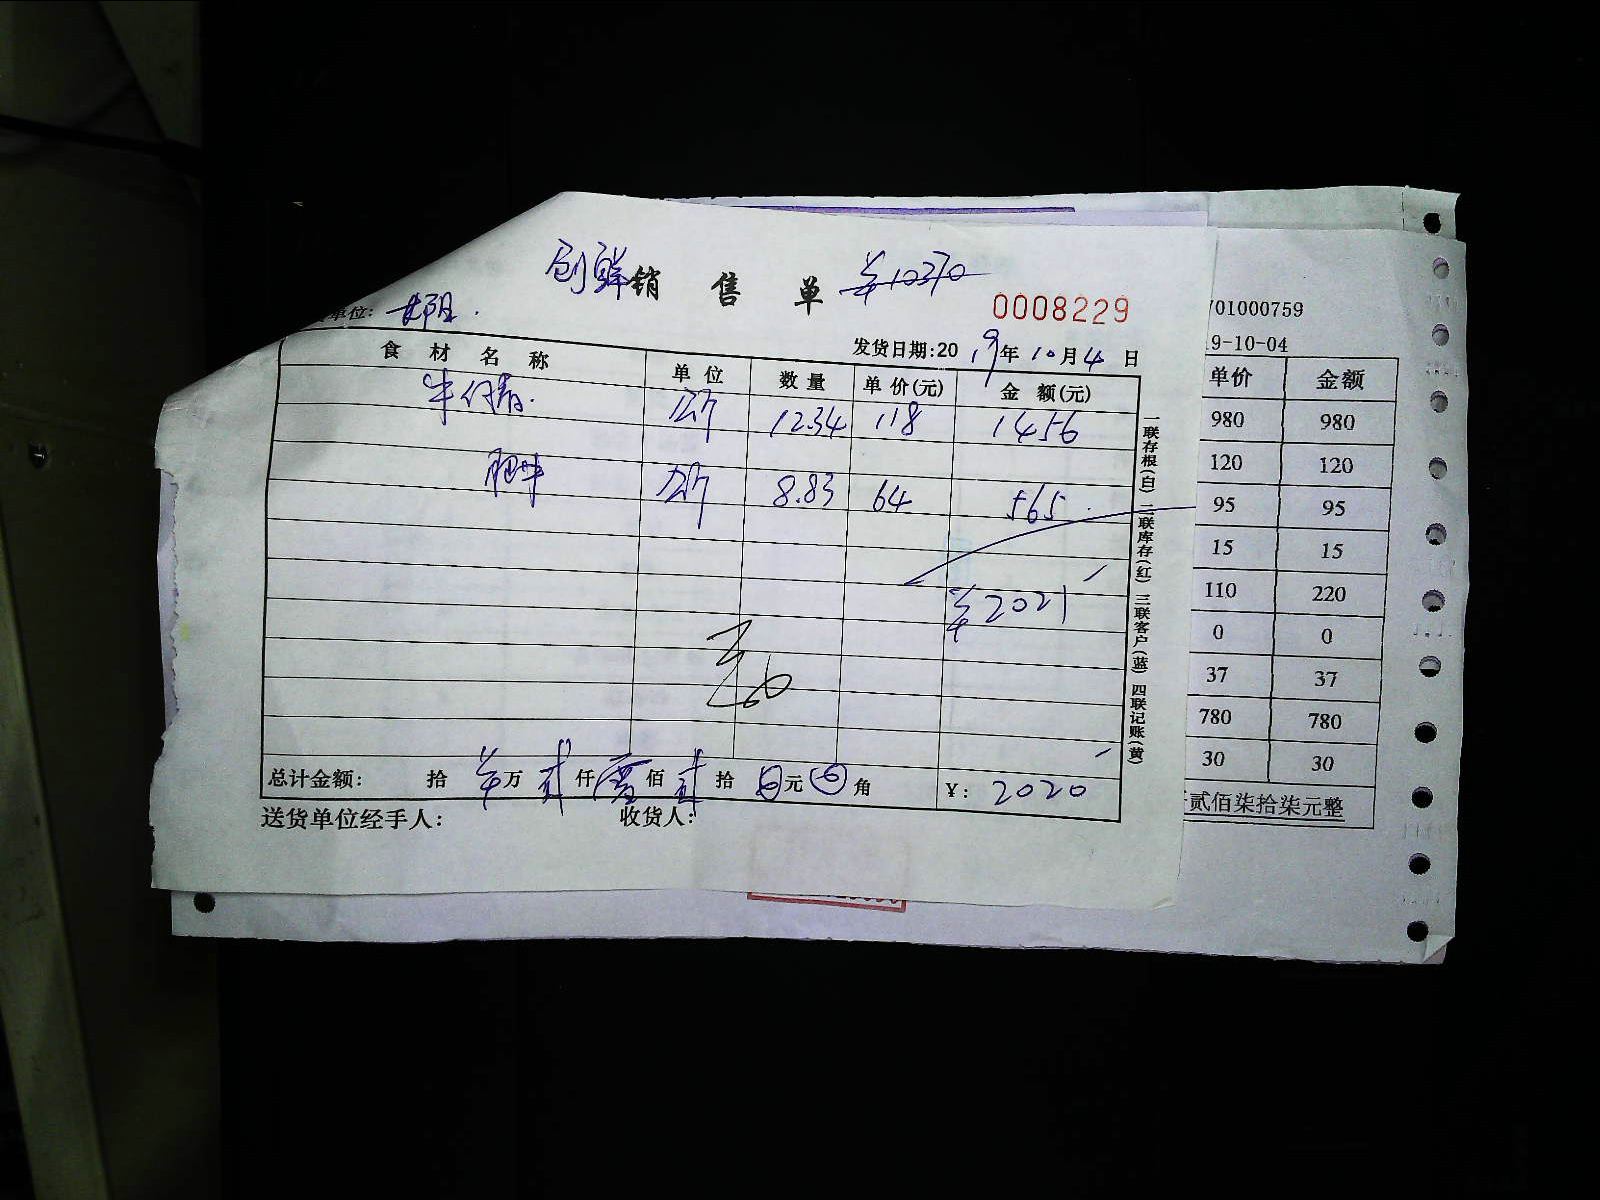 创鲜销售单 ¥10370
0008229
单位:
发货日期:2019年10月4日
食材名称 单位 数量 单价(元) 金额(元)
公斤 12.34 118 1456
肥牛 公斤 8.83 64 565
¥2021
总计金额: 拾 万 贰仟 零佰 贰拾 0元 0角 ¥: 2020
送货单位经手人: 收货人:
一联存根(白) 二联库存(红) 三联客户(蓝) 四联记账(黄)
701000759
19-10-04
单价 金额
980 980
120 120
95 95
15 15
110 220
0 0
37 37
780 780
30 30
贰佰柒拾柒元整